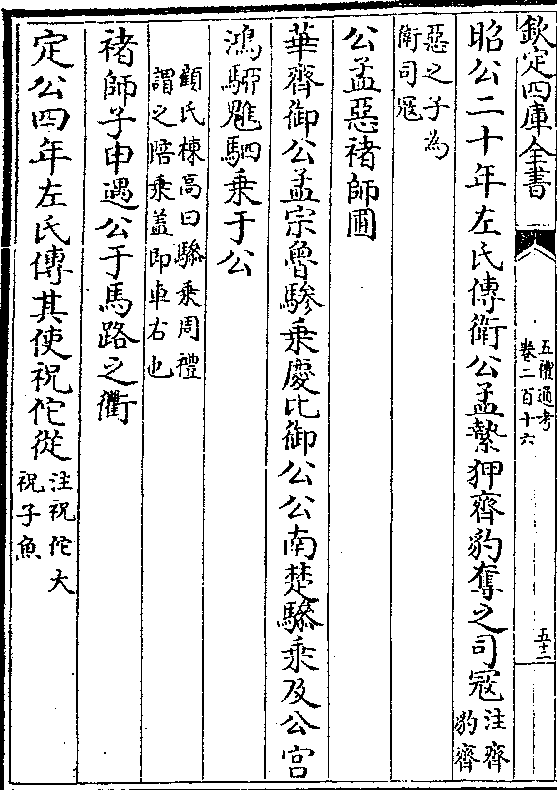 欽定四庫全書
五禮通考
卷二百十六
五十二
昭公二十年左氏傳衛公孟縶狎齊豹奪之司寇注齊豹齊
惡之子為
衛司寇
公孟惡褚師圃
華齊御公孟宗魯驂乘慶比御公公南楚驂乘及公宫
鴻駵魋駟乘于公
顧氏棟高曰驂乘周禮
謂之陪乘蓋即車右也
褚師子申遇公于馬路之衢
定公四年左氏傳其使祝佗從注祝佗大
祝子魚